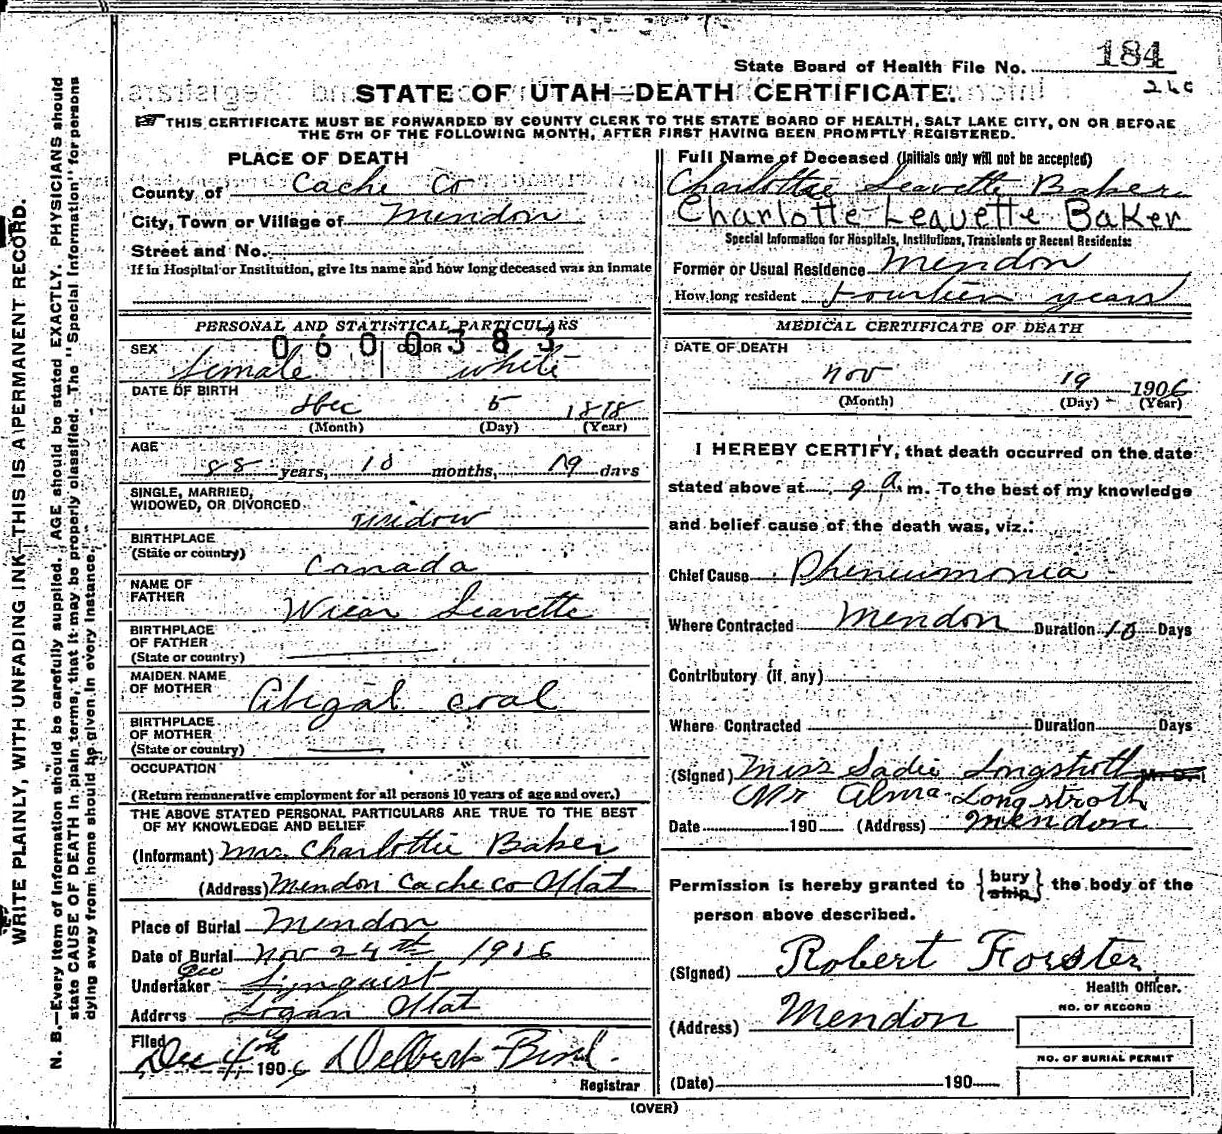 184
State Board of Health File No.
260
STATE OF UTAH—DEATH CERTIFICATE.
THIS CERTIFICATE MUST BE FORWARDED BY COUNTY CLERK TO THE STATE BOARD OF HEALTH, SALT LAKE CITY, ON OR BEFORE
THE 5TH OF THE FOLLOWING MONTH, AFTER FIRST HAVING BEEN PROMPTLY REGISTERED.
WRITE PLAINLY, WITH UNFADING INK—THIS IS A PERMANENT RECORD.
N. B.—Every item of information should be carefully supplied. AGE should be stated EXACTLY. PHYSICIANS should
state CAUSE OF DEATH in plain terms, that it may be properly classified. The "Special Information" for persons
dying away from home should be given in every instance.
PLACE OF DEATH
County of Cache Co
City, Town or Village of Mendon
Street and No.
If in Hospital or Institution, give its name and how long deceased was an inmate
PERSONAL AND STATISTICAL PARTICULARS
0600383
SEX COLOR
Female white
DATE OF BIRTH
Dec 5
(Month) (Day) (Year)
AGE
years, 10 months, 19 days
SINGLE, MARRIED,
WIDOWED, OR DIVORCED
widow
BIRTHPLACE
(State or country)
Canada
NAME OF
FATHER
Leavette
BIRTHPLACE
OF FATHER
(State or country)
MAIDEN NAME
OF MOTHER
Abigal Coal
BIRTHPLACE
OF MOTHER
(State or country)
OCCUPATION
(Return remunerative employment for all persons 10 years of age and over.)
THE ABOVE STATED PERSONAL PARTICULARS ARE TRUE TO THE BEST
OF MY KNOWLEDGE AND BELIEF
(Informant) Mrs. Charlottie Baker
(Address) Mendon Cache Co Utat
Place of Burial Mendon
Date of Burial Nov 24th 1906
Undertaker Geo Lynquist
Address Logan Utat
Filed
Dec 4th 1906 Delbert Bird.
Registrar
Full Name of Deceased (Initials only will not be accepted)
Charlottie Leavette Baker
Charlotte Leavette Baker
Special Information for Hospitals, Institutions, Transients or Recent Residents:
Former or Usual Residence Mendon
How long resident Fourteen years
MEDICAL CERTIFICATE OF DEATH
DATE OF DEATH
Nov 19 1906
(Month) (Day) (Year)
I HEREBY CERTIFY, that death occurred on the date
stated above at 9 a. m. To the best of my knowledge
and belief cause of the death was, viz.:
Chief Cause Pheneumonia
Where Contracted Mendon Duration 10 Days
Contributory (if any)
Where Contracted Duration Days
(Signed) Miss Sadie Longstroth M. D.
Mr Alma Longstroth
Date 190 (Address) Mendon
Permission is hereby granted to {bury ship} the body of the
person above described.
(Signed) Robert Forster
Health Officer.
(Address) Mendon
NO. OF RECORD
NO. OF BURIAL PERMIT
(Date) 190
(OVER)